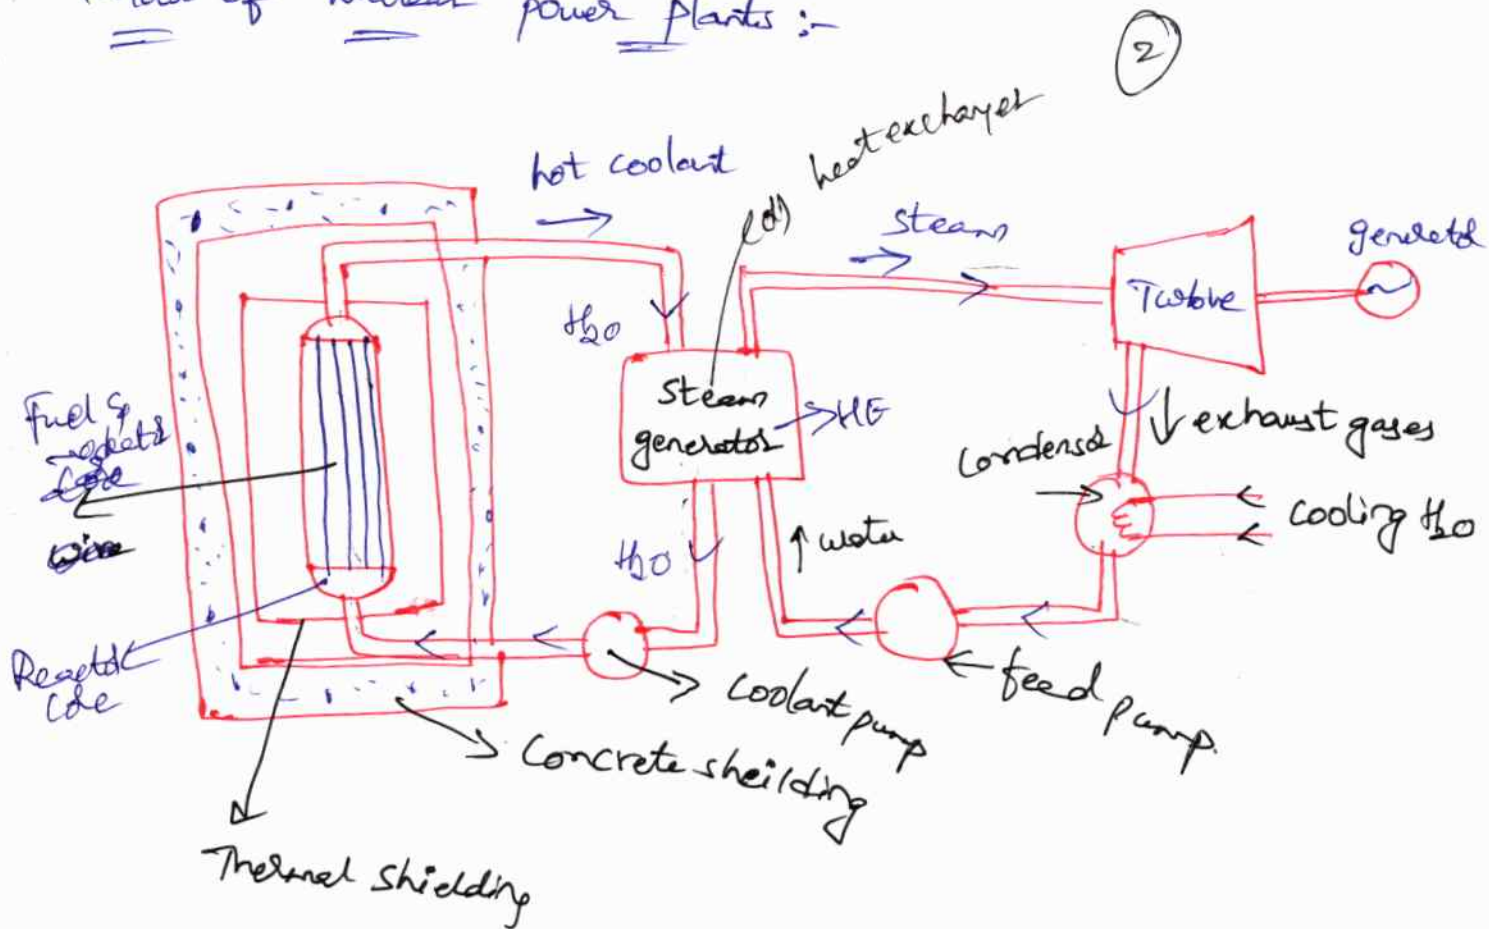 of power plants :-
2
hot coolant
(or) heat exchanger
steam
generator
Turbine
H2O
Steam
generator
HE
Fuel
core
exhaust gases
Condensor
cooling H2O
H2O
water
Reactor
Core
coolant pump
feed pump.
Concrete sheilding
Thermal shielding